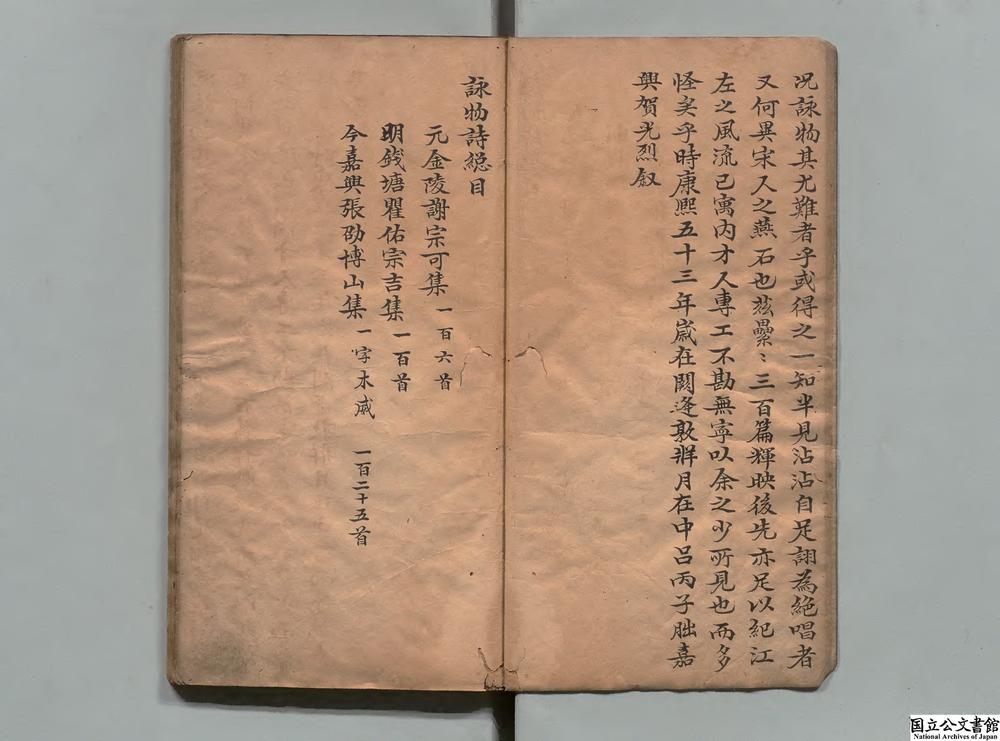 况詠物其尤難者乎或得之一知半見沾沾自足詡為絶唱者
又何異宋人之燕石也茲纍〻三百篇輝映後先亦足以紀江
左之風流已寓内才人專工不尠無寧以余之少所見也而多
怪矣乎時康熙五十三年嵗在閼逢敦牂月在中吕丙子朏嘉
興賀光烈叙
詠物詩総目
元金陵謝宗可集 一百六首
明錢塘瞿佑宗吉集 一百首
今嘉興張劭博山集 一字木威 一百二十五首
国立公文書館
National Archives of Japan